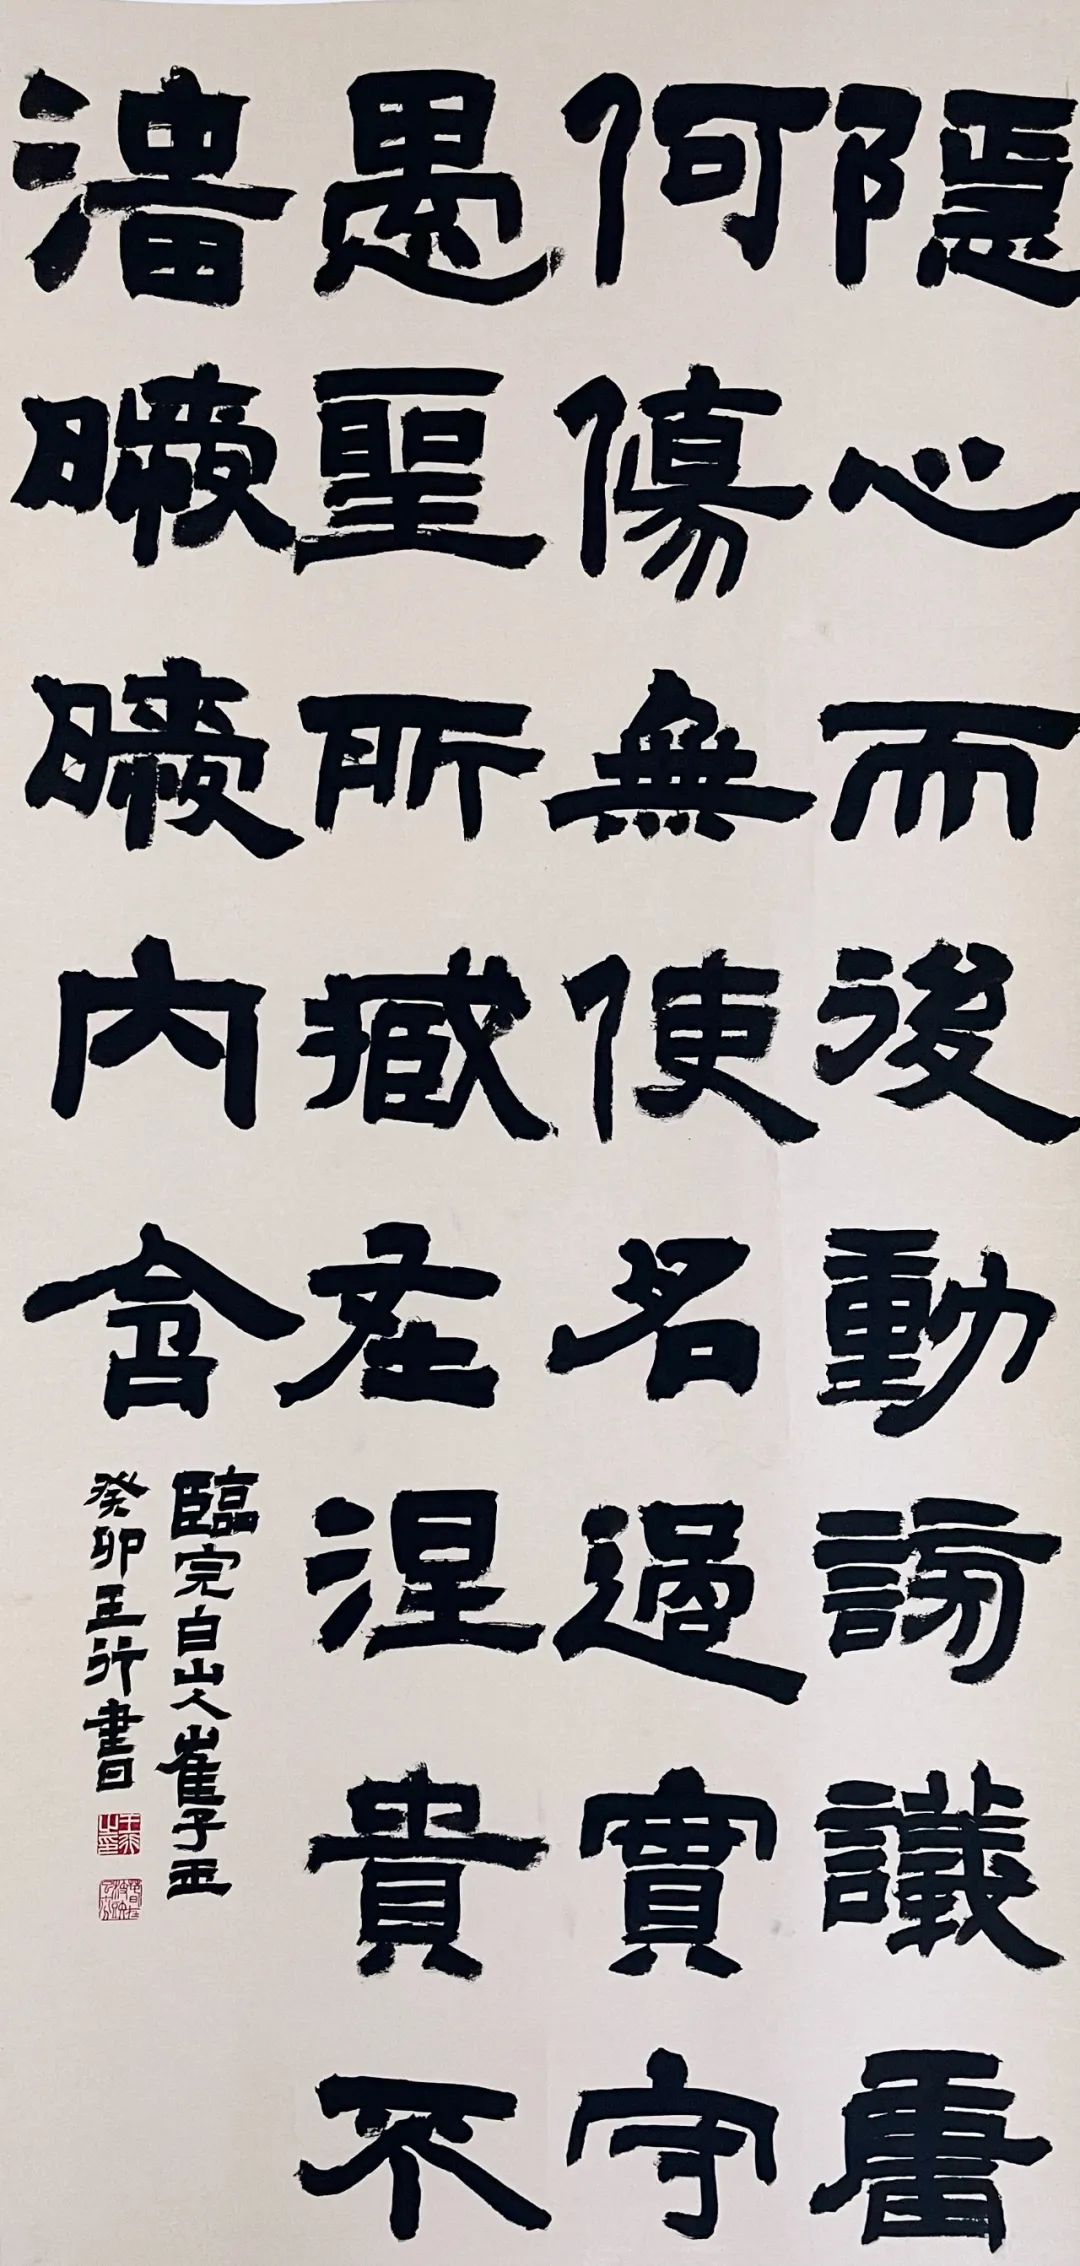 隱心而後動謗議庸
何傷無使名過實守
愚聖所臧在涅貴不
淄曖曖內含
臨完白山人崔子玉
癸卯王行書